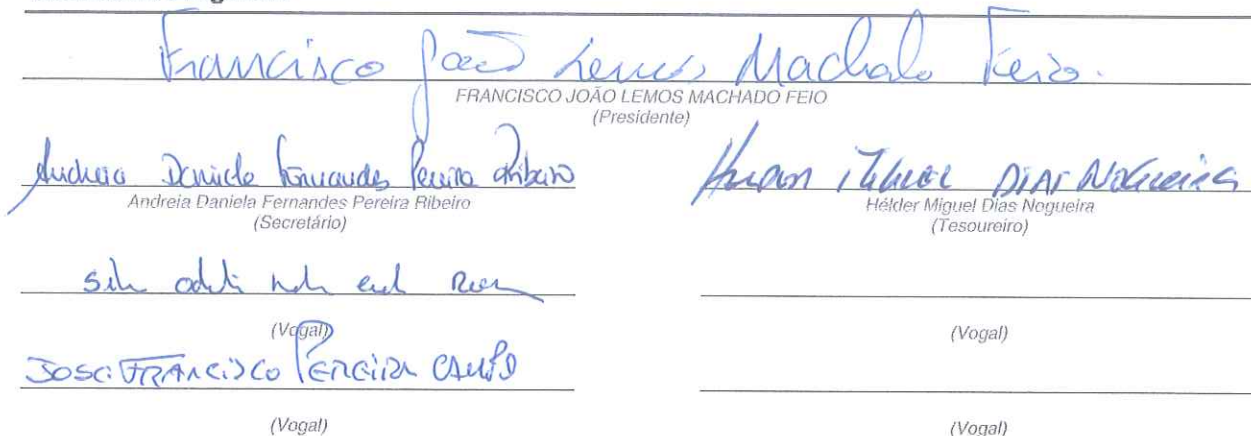 Francisco João Lemos Machado Feio.
FRANCISCO JOÃO LEMOS MACHADO FEIO
(Presidente)
Andreia Daniela Fernandes Pereira Ribeiro
Andreia Daniela Fernandes Pereira Ribeiro
(Secretário)
Miguel DIAS Nogueira
Hélder Miguel Dias Nogueira
(Tesoureiro)
(Vogal)
(Vogal)
JOSE FRANCISCO PEREIRA
(Vogal)
(Vogal)